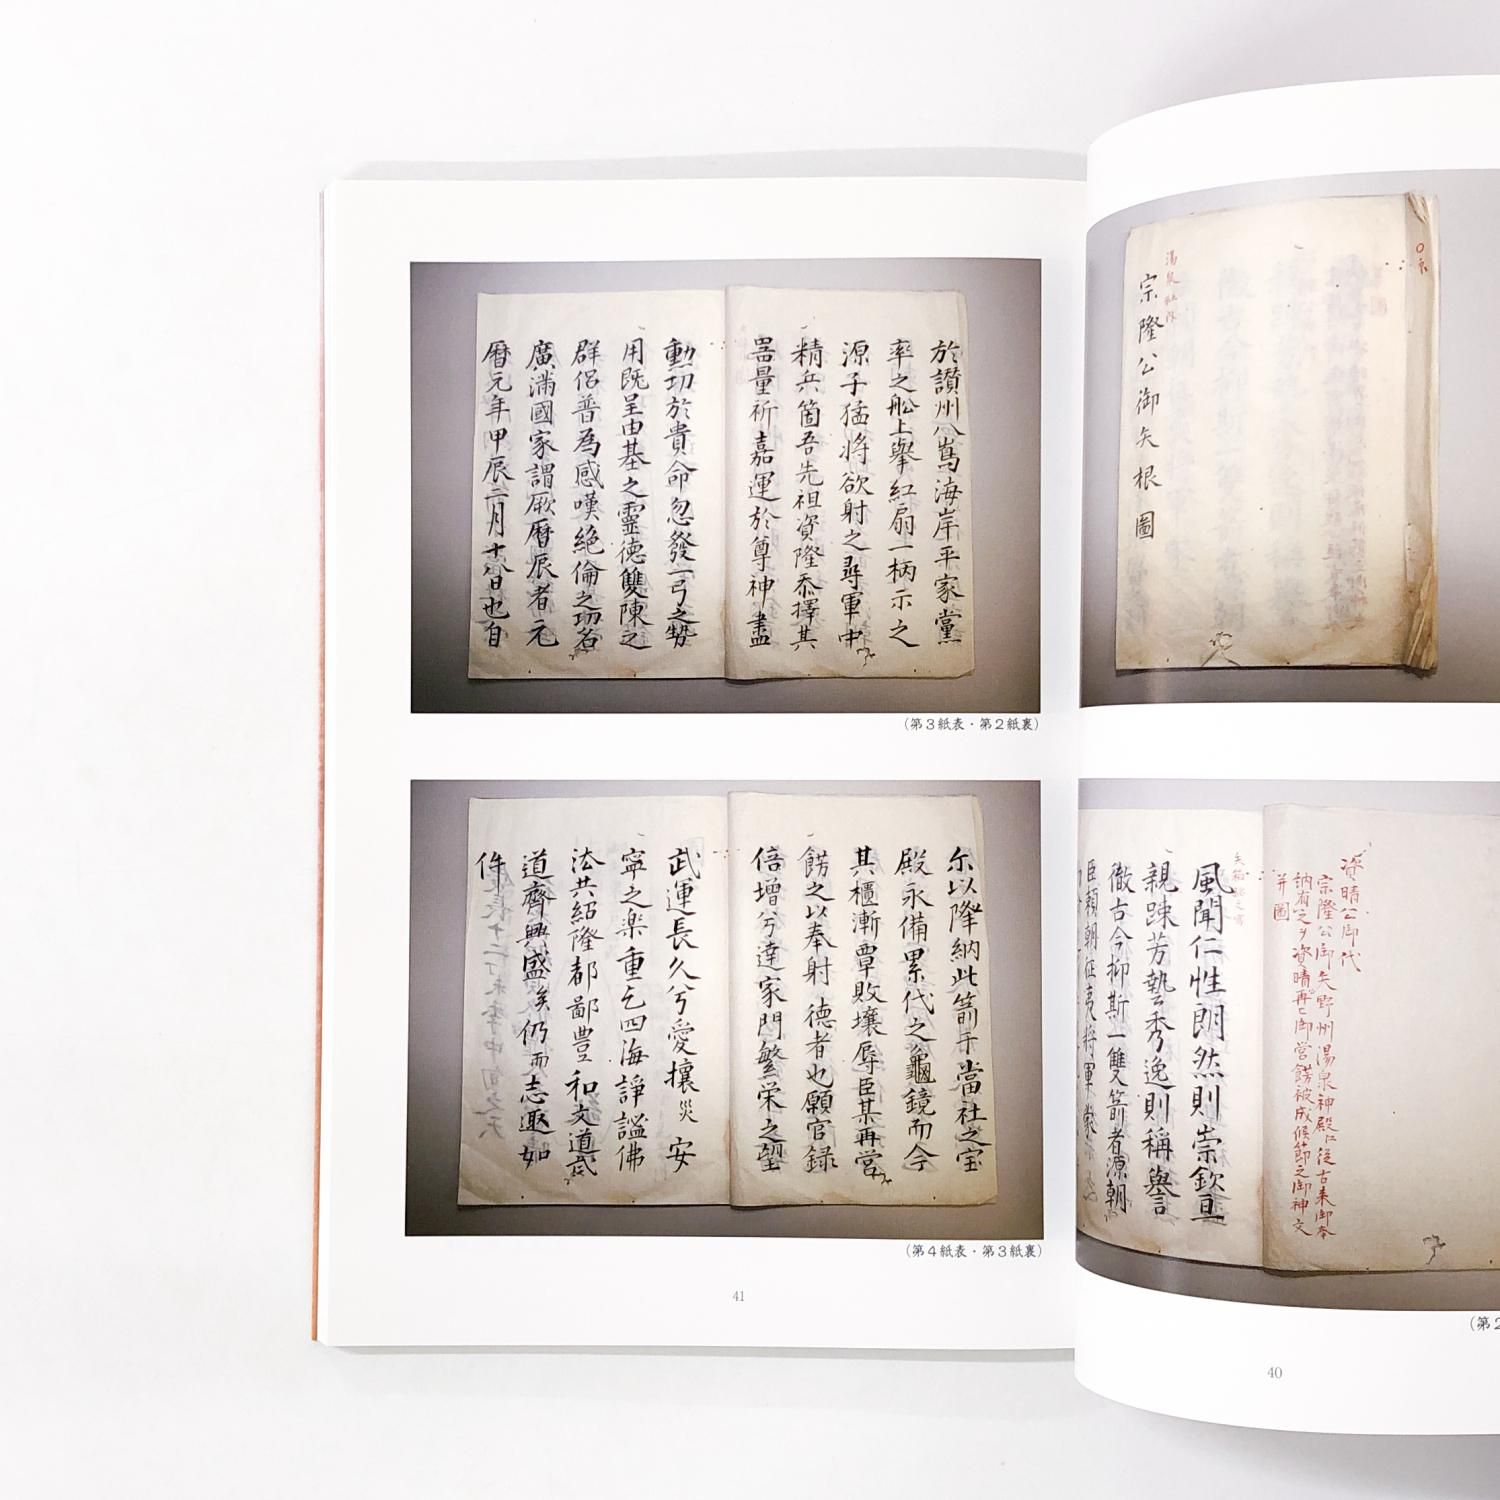 湯泉社除
宗隆公御矢根圖
資晴公御代
宗隆公御矢野州湯泉神殿に従古来御奉
納有之ヲ資晴再ビ御営餝被成候節之御神文
并圖
風聞仁性朗然則崇欽亘
親踈芳埶云秀逸則稱譽言
徹古今抑斯一雙箭者源朝
臣頼朝征夷将軍
(第2
40
於讃州八嶌海岸平家黨
率之舩上擧紅扇一柄示之
源子猛将欲射之尋軍中
精兵箇吾先祖資隆忝擇其
噐量祈嘉運於尊神盡
勳切於貴命忽發一弓之勢
用既呈由基之靈德雙陳之
群侶普為感嘆絶倫之功名
廣満國家謂厥暦辰者元
暦元年甲辰二月十八日也自
(第3紙表・第2紙裏)
尓以降納此箭于當社之宝
殿永備累代之龜鏡而今
其櫃漸覃敗壤辱臣某再營
餝之以奉射德者也願官録
倍増兮達家門繁栄之望
武運長久兮愛攘災安
寧之楽重乞四海諍謐佛
法共紹隆都鄙豊和文道武
道齊興盛矣仍而志趣如
件
(第4紙表・第3紙裏)
41